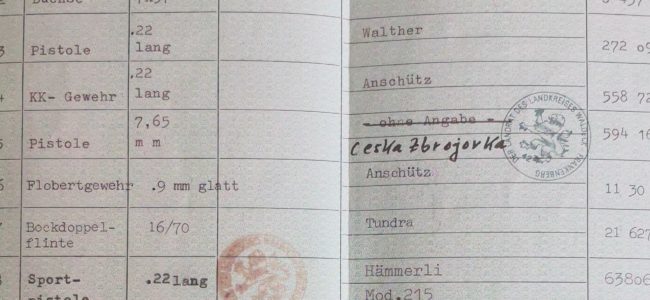 3 Pistole .22 lang Walther 272 09
KK- Gewehr .22 lang Anschütz 558 72
Pistole 7,65 m m - ohne Angabe - 594 16
Ceska Zbrojovka
DER LANDRAT DES LANDKREISES WALDECK FRANKENBERG
Flobertgewehr .9 mm glatt Anschütz 11 30
Bockdoppel-
flinte 16/70 Tundra 21 627
Sport-
pistole .22lang Hämmerli
Mod.215 63806